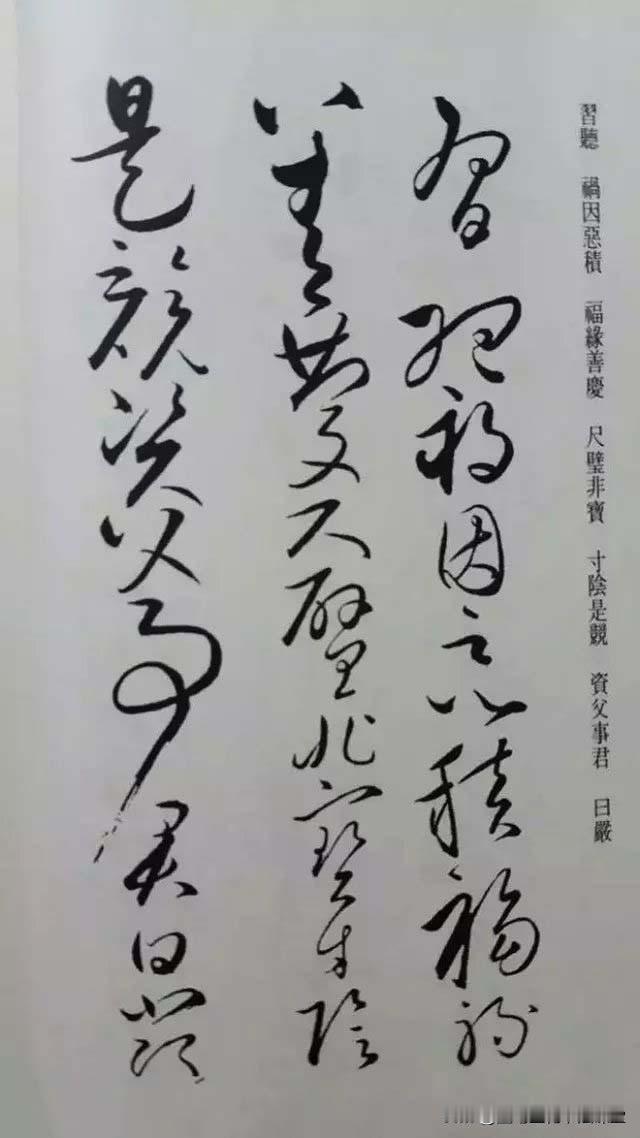 習聽 禍因惡積 福緣善慶 尺璧非寶 寸陰是競 資父事君 曰嚴
習聽禍因惡積福緣
善慶尺璧非寶寸陰
是競資父事君曰嚴